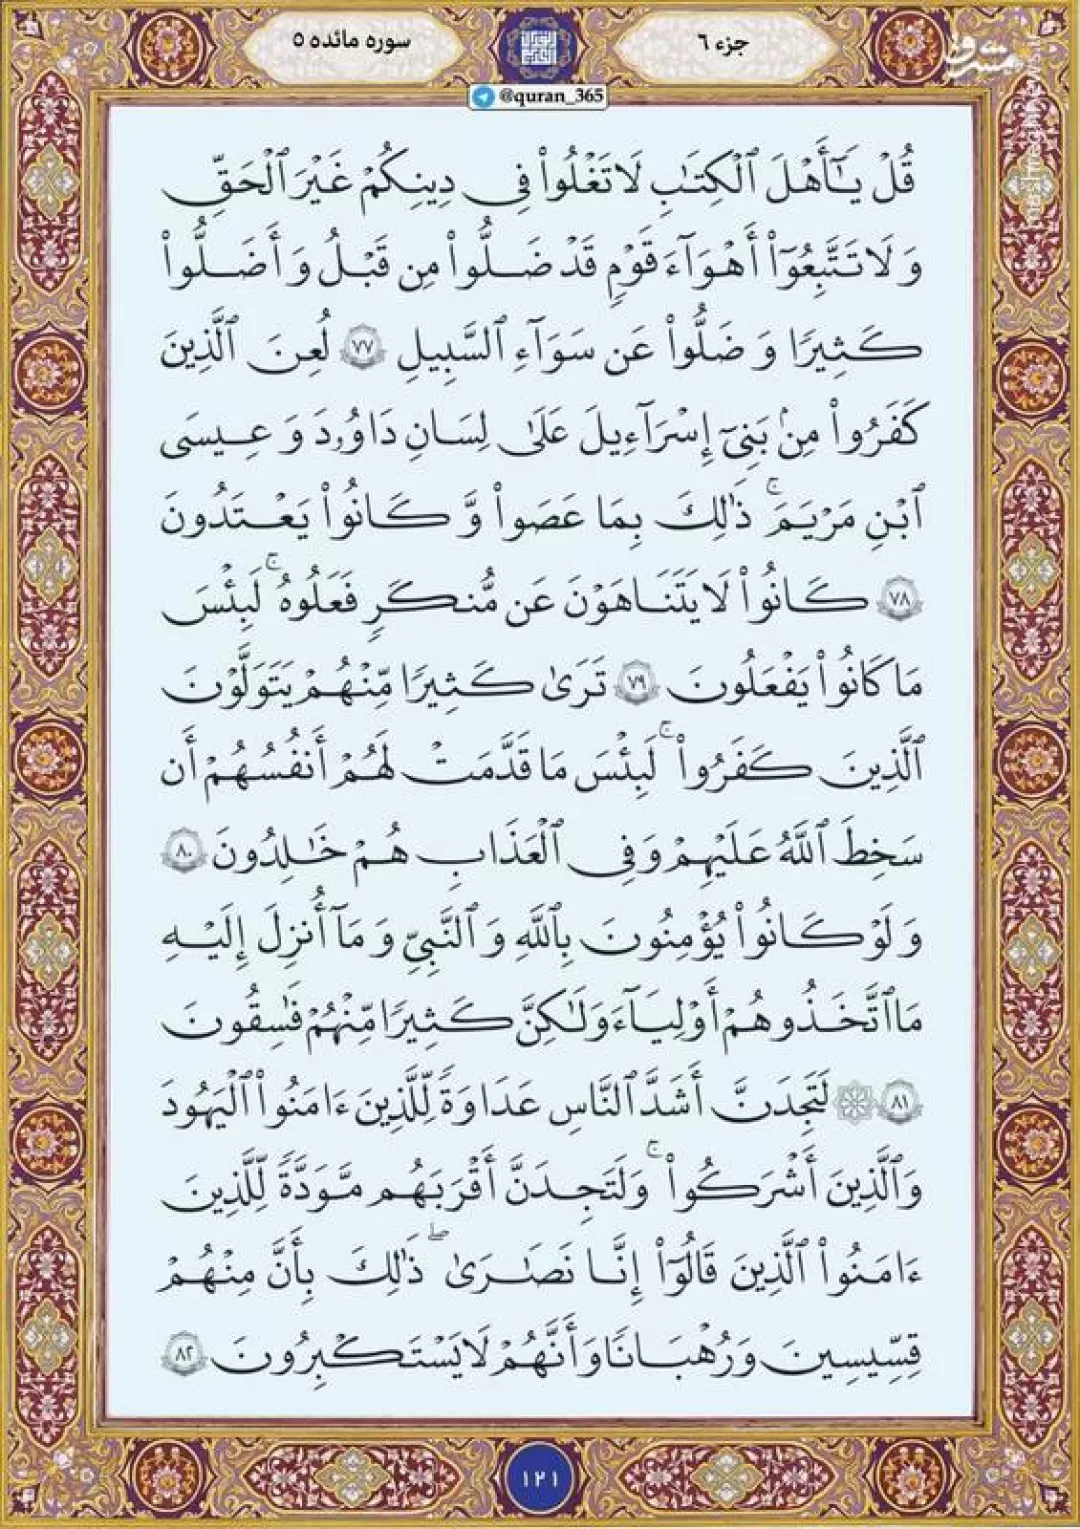 جزء ۶
سوره مائده ۵
@quran_365
مشرق
قُلْ يَـٰٓأَهْلَ ٱلْكِتَـٰبِ لَا تَغْلُوا۟ فِى دِينِكُمْ غَيْرَ ٱلْحَقِّ
وَلَا تَتَّبِعُوٓا۟ أَهْوَآءَ قَوْمٍ قَدْ ضَلُّوا۟ مِن قَبْلُ وَأَضَلُّوا۟
كَثِيرًا وَضَلُّوا۟ عَن سَوَآءِ ٱلسَّبِيلِ ۷۷ لُعِنَ ٱلَّذِينَ
كَفَرُوا۟ مِنۢ بَنِىٓ إِسْرَٰٓءِيلَ عَلَىٰ لِسَانِ دَاوُۥدَ وَعِيسَى
ٱبْنِ مَرْيَمَ ۚ ذَٰلِكَ بِمَا عَصَوا۟ وَّكَانُوا۟ يَعْتَدُونَ
۷۸ كَانُوا۟ لَا يَتَنَاهَوْنَ عَن مُّنكَرٍ فَعَلُوهُ ۚ لَبِئْسَ
مَا كَانُوا۟ يَفْعَلُونَ ۷۹ تَرَىٰ كَثِيرًا مِّنْهُمْ يَتَوَلَّوْنَ
ٱلَّذِينَ كَفَرُوا۟ ۚ لَبِئْسَ مَا قَدَّمَتْ لَهُمْ أَنفُسُهُمْ أَن
سَخِطَ ٱللَّهُ عَلَيْهِمْ وَفِى ٱلْعَذَابِ هُمْ خَـٰلِدُونَ ۸۰
وَلَوْ كَانُوا۟ يُؤْمِنُونَ بِٱللَّهِ وَٱلنَّبِىِّ وَمَآ أُنزِلَ إِلَيْهِ
مَا ٱتَّخَذُوهُمْ أَوْلِيَآءَ وَلَـٰكِنَّ كَثِيرًا مِّنْهُمْ فَـٰسِقُونَ
۸۱ لَتَجِدَنَّ أَشَدَّ ٱلنَّاسِ عَدَاوَةً لِّلَّذِينَ ءَامَنُوا۟ ٱلْيَهُودَ
وَٱلَّذِينَ أَشْرَكُوا۟ ۚ وَلَتَجِدَنَّ أَقْرَبَهُم مَّوَدَّةً لِّلَّذِينَ
ءَامَنُوا۟ ٱلَّذِينَ قَالُوٓا۟ إِنَّا نَصَـٰرَىٰ ۖ ذَٰلِكَ بِأَنَّ مِنْهُمْ
قِسِّيسِينَ وَرُهْبَانًا وَأَنَّهُمْ لَا يَسْتَكْبِرُونَ ۸۲
۱۲۱